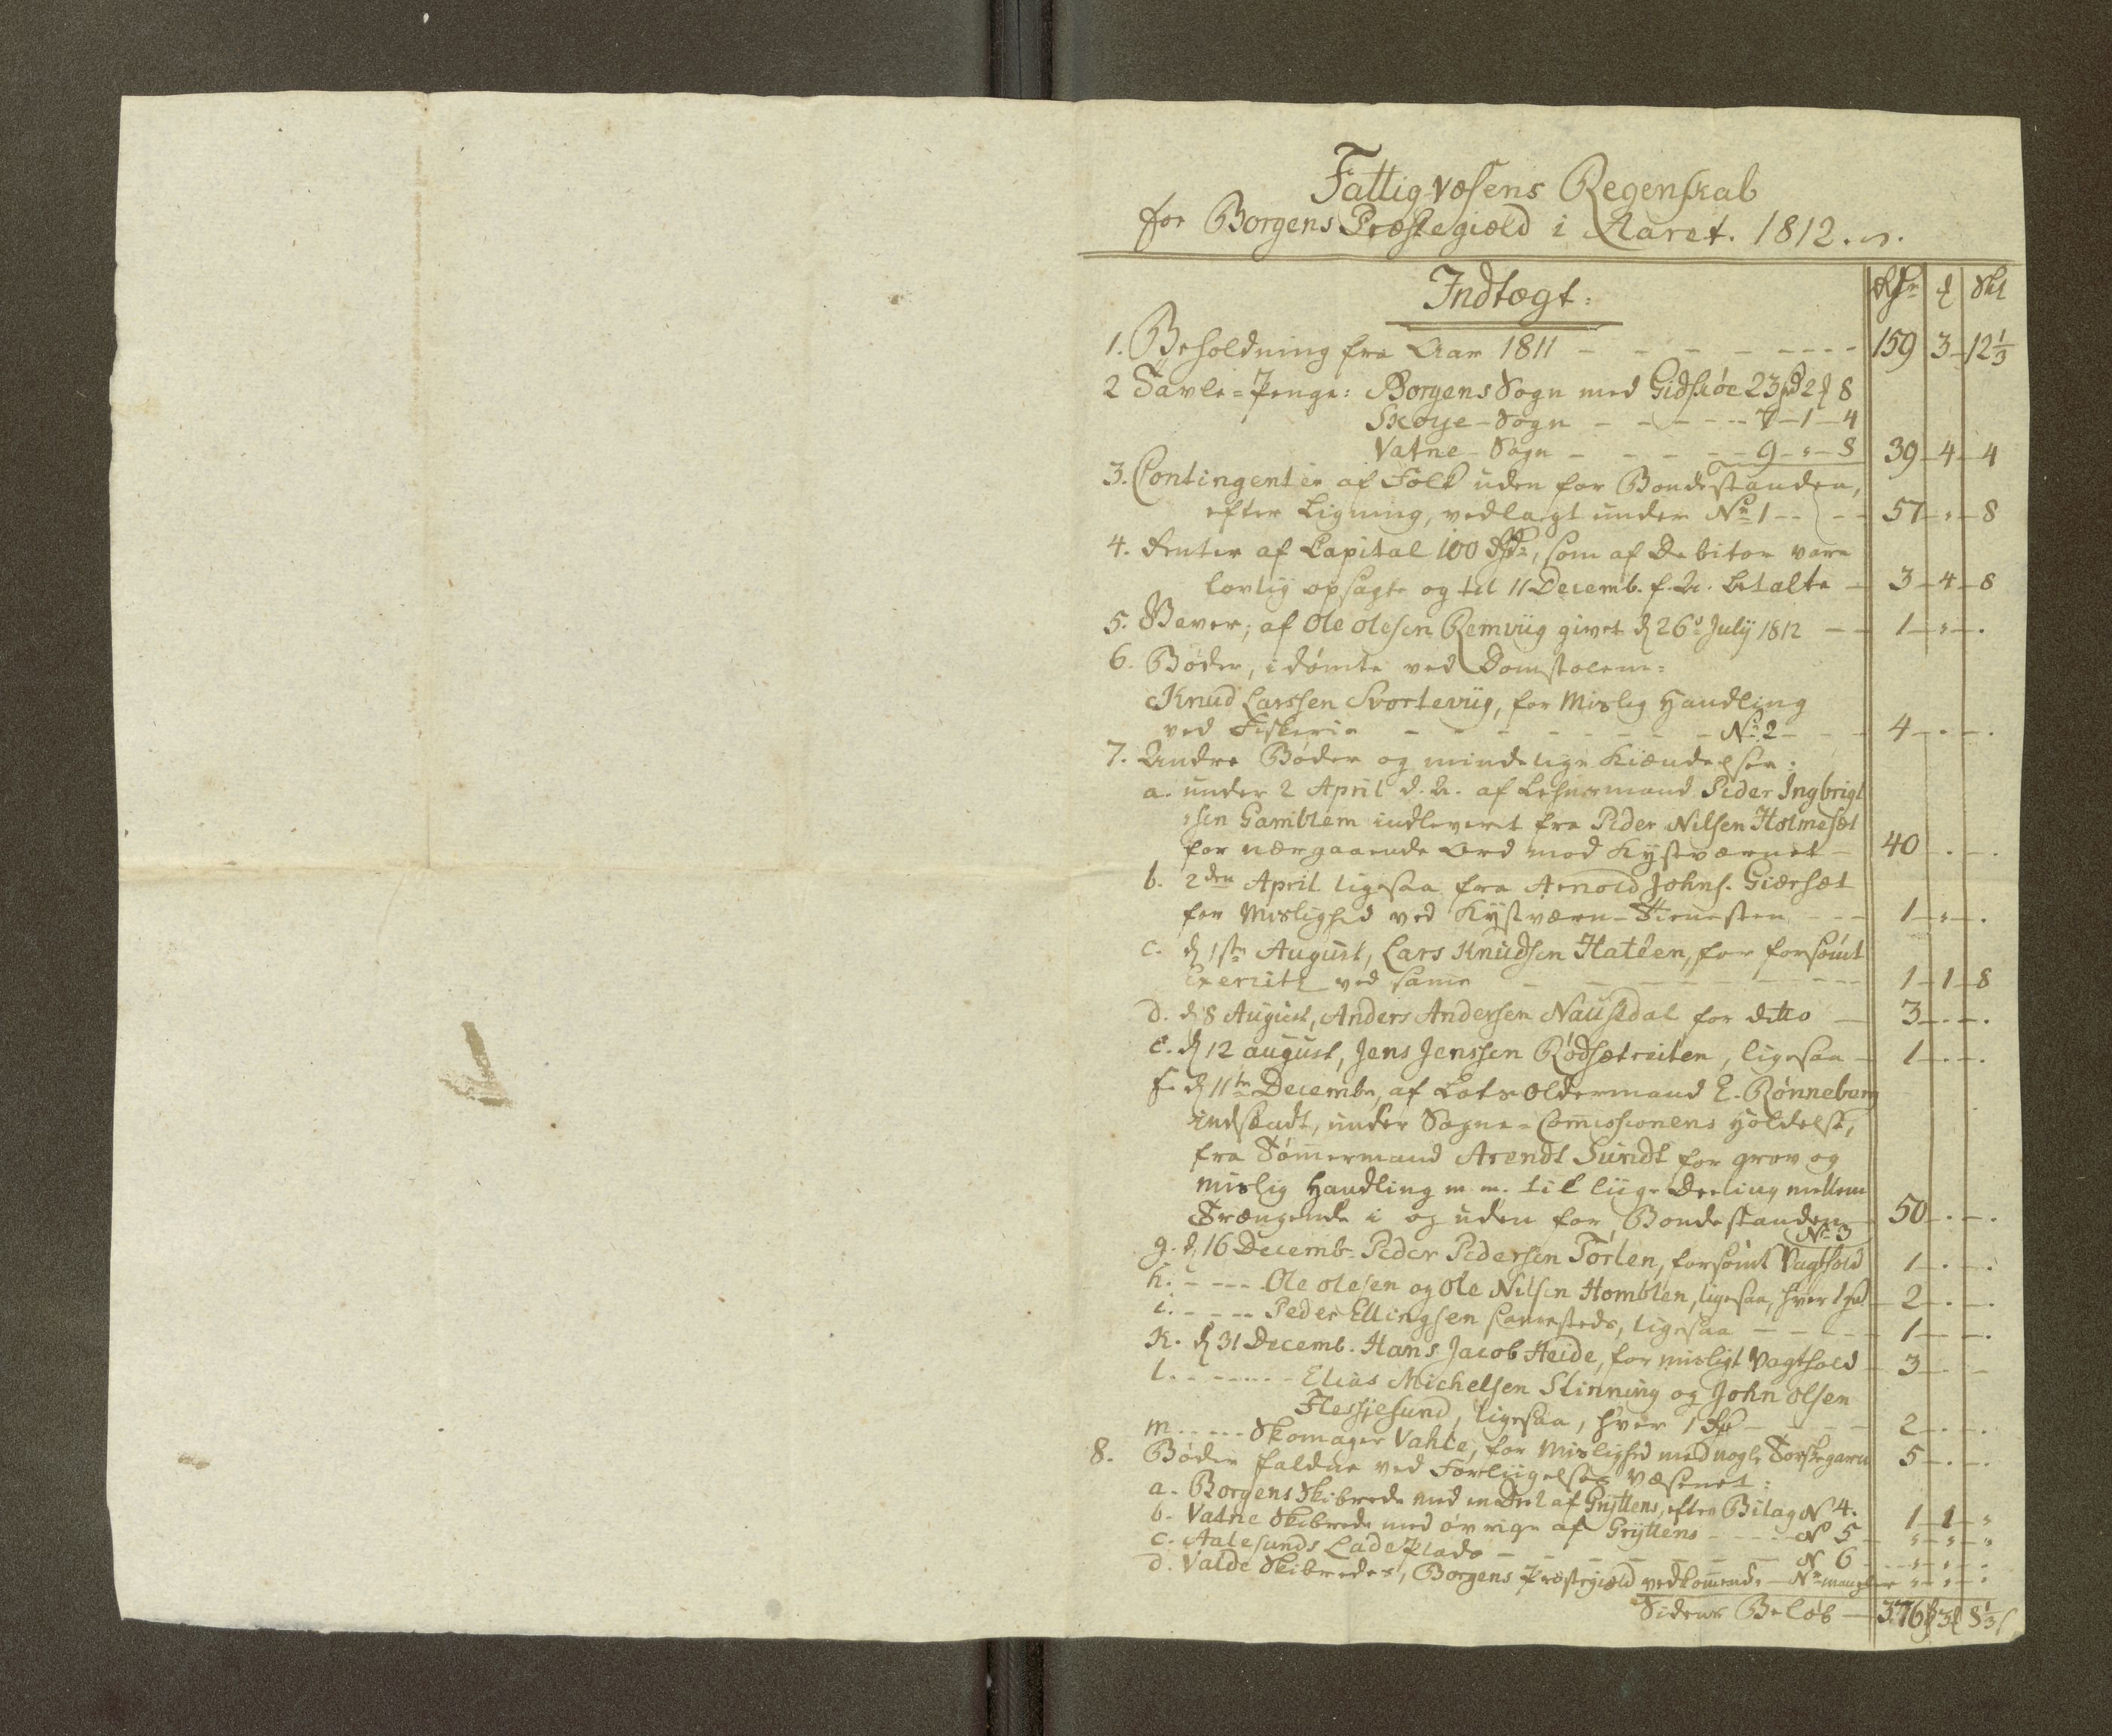 Fattig-Væsens Regenskab
for Borgens Præstegiæld i Aaret. 1812.
Indtægt: Rdr ꝑ Skl
1. Beholdning fra Aar 1811 - - - - - - - - 159 - 3 - 12 1/3
2 Tavle-Penge: Borgens Sogn med Gidskøe 23 rd 2 ꝑ 8
Skoye-Sogn - - - - - 7 - 1 - 4
Vatne-Sogn - - - - - 9 - " - 8 39 - 4 - 4
3. Contingenter af Folk uden for Bondestanden,
efter Ligning, vedlagt under No 1 - - - - 57 - " - 8
4. Renter af Capital 100 Rdr, som af Debitor vare
lovlig opsagte og til 11 Decemb. f. A. betalte - 3 - 4 - 8
5. Gaver; af Ole Olesen Remviig givet d 26d July 1812 - - 1 - " - .
6. Bøder, idømte ved Domstolene:
Knud Larssen Svorteviig, for Mislig Handling
ved Fiskerie - - - - - - - No 2 - - - 4 - . - .
7. Andre Bøder og mindelige Kiændelser:
a. under 2 April d. A. af Lehnsmand Peder Ingbrigt
=sen Gamblem indleveret fra Peder Nilsen Holmesæt
for nærgaaende Ord mod Kystværnet - 40 - . - .
b. 2den April ligesaa fra Arnold Johns. Giærsæt
for Mislighed ved Kystværn-Tienesten - - - 1 - " - .
c. d 1ste August, Lars Knudsen Hatlen, for forsømt
Exercits ved samme - - - - - - - - 1 - 1 - 8
d. d 8 August, Anders Andersen Naustdal for ditto - 3 - . - .
e. d 12 august, Jens Jenssen Rødsætreiten, ligesaa - 1 - . - .
f. d 11te Decembr, af Lots Oldermand E. Rønneberg
indsendt, under Sogne-Comissionens Holdelse,
fra Tømermand Arendt Suridt for grov og
mislig Handling m. m. til liige Deeling mellem
Trængende i og uden for Bondestanden - 50 - . - .
No 3
g. d 16 Decemb. Peder Pedersen Tørlen, forsømt Vagthold 1 - . - .
h. - - - - Ole Olesen og Ole Nilsen Homblen, ligesaa, hver 1 rd - 2 - . - .
i. - - - - Peder Ellingsen samesteds, ligesaa - - - - - 1 - - .
K. d 31 Decemb. Hans Jacob Heide, for misligt Vagthold - 3 - - -
l. - - - - - - - Elias Michelsen Slinning og John Olsen
Flessjesund, ligesaa, hver 1 Rd - - - - - 2 - . - .
m - - - - - Skomager Vahle, for Mislighed med nogle Torskegarn 5 - . - .
8. Bøder faldne ved Forliigelses Væsenet:
a. Borgens Skibrede med en Deel af Gryttens, efter Bilag N 4. 1 - 1 - "
b. Vatne Skibrede med øvrige af Gryttens - - - - No 5 - " - " - "
c. Aalesunds Ladeplads - - - - - - - N 6 - - " - " - .
d. Valde Skibredes, Borgens Præstegiæld vedkommende - No mangler " - " - .
Sidens Beløb - 376 rd 3 ꝑ 8 1/3 s